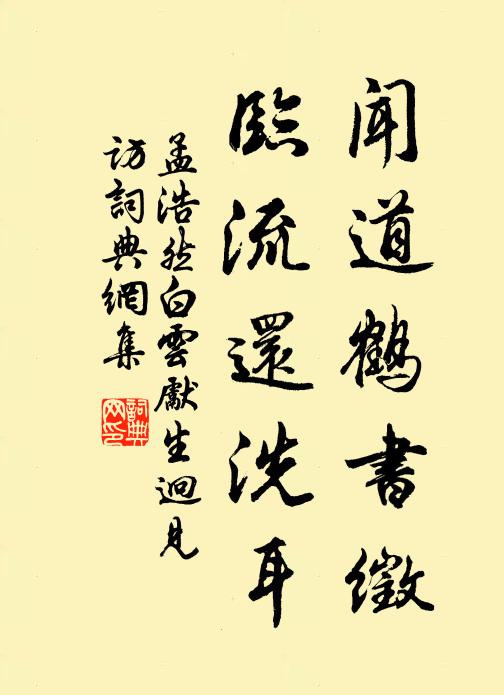 聞道鶴書徵
臨流還洗耳
孟浩然白雲獻生迥見
訪詞典網集
詞典网印